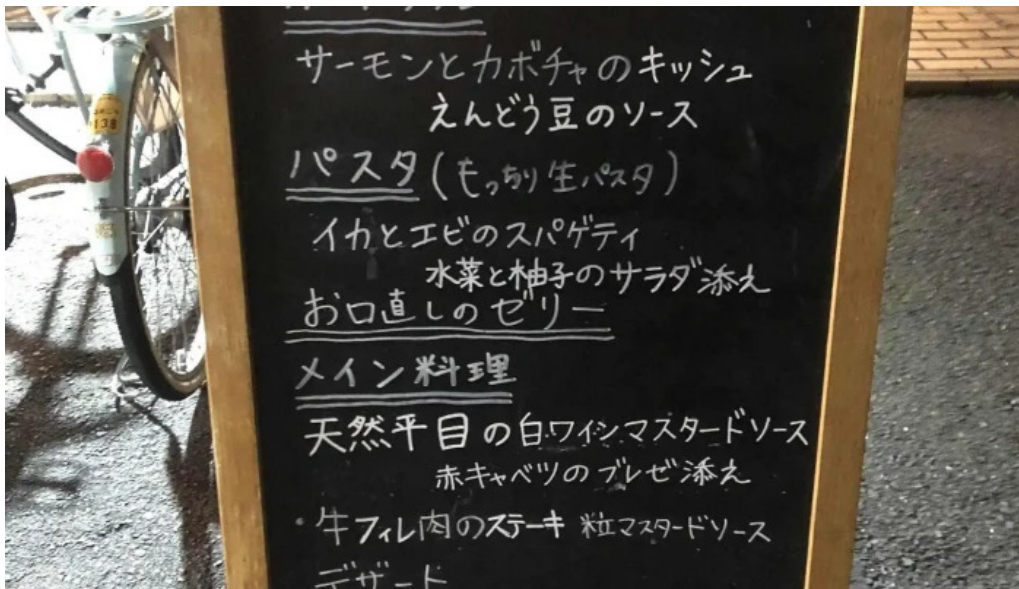 サーモンとカボチャのキッシュ
えんどう豆のソース
パスタ(もっちり生パスタ)
イカとエビのスパゲティ
水菜と柚子のサラダ添え
お口直しのゼリー
メイン料理
天然平目の白ワインマスタードソース
赤キャベツのブレゼ添え
・牛フィレ肉のステーキ 粒マスタードソース
デザート
138